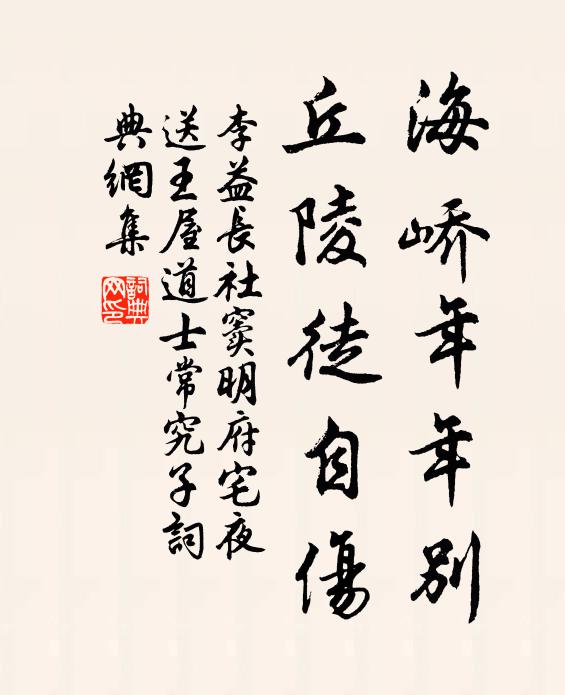 海峤年年別
丘陵徒自傷
李益長社竇明府宅夜
送王屋道士常究子詞
典網集
詞典網印